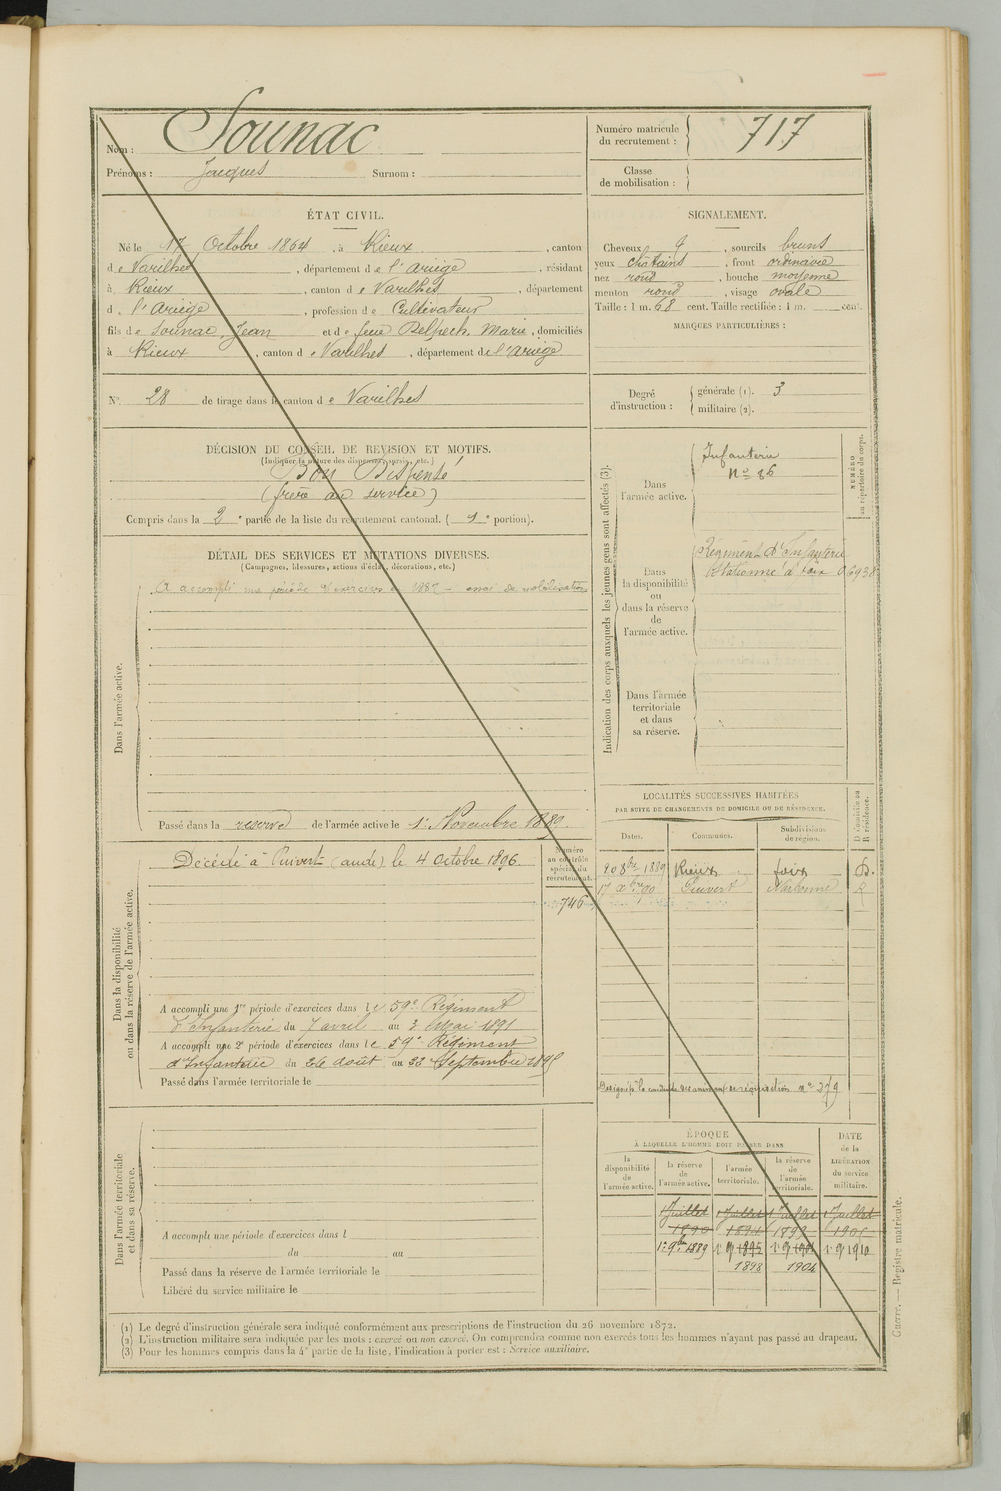 Nom : Sounac
Prénoms : Jacques Surnom :
Numéro matricule du recrutement : 717
Classe de mobilisation :
ÉTAT CIVIL.
Né le 17 Octobre 1864, à Rieux, canton
de Varilhes, département de l'Ariège, résidant
à Rieux, canton de Varilhes, département
d l'Ariège, profession de Cultivateur
fils de Sounac, Jean et de feue Delpech, Marie, domiciliés
à Rieux, canton de Varilhes, département de l'Ariège
N° 28 de tirage dans le canton de Varilhes
SIGNALEMENT.
Cheveux, sourcils bruns
yeux châtains, front ordinaire
nez rond, bouche moyenne
menton rond, visage ovale
Taille : 1 m. 68 cent. Taille rectifiée : 1 m. cent.
MARQUES PARTICULIÈRES :
Degré d'instruction : générale (1). 3
militaire (2).
DÉCISION DU CONSEIL DE REVISION ET MOTIFS.
(Indiquer la nature des dispenses, sursis, etc.)
Bon Dispensé
(frère au service)
Compris dans la 2e partie de la liste du recrutement cantonal. (1e portion).
DÉTAIL DES SERVICES ET MUTATIONS DIVERSES.
(Campagnes, blessures, actions d'éclat, décorations, etc.)
Dans l'armée active.
A accompli une période d'exercices en 1887 - essai de mobilisation
Passé dans la réserve de l'armée active le 1er Novembre 1889.
Indication des corps auxquels les jeunes gens sont affectés (3).
NUMÉRO au répertoire du corps.
Dans l'armée active.
Infanterie
N° 86
Dans la disponibilité ou dans la réserve de l'armée active.
Régiment d'Infanterie
Stationné à Foix
Dans l'armée territoriale et dans sa réserve.
LOCALITÉS SUCCESSIVES HABITÉES
PAR SUITE DE CHANGEMENTS DE DOMICILE OU DE RÉSIDENCE.
Dates. Communes. Subdivisions de région. D domicile ou R résidence.
8bre 1889 Rieux foix D.
17 Xbre 90 Puivert Narbonne R
Dans la disponibilité ou dans la réserve de l'armée active.
Numéro au contrôle spécial du recrutement.
746
Décédé à Puivert (aude) le 4 Octobre 1896.
A accompli une 1re période d'exercices dans le 59e Régiment
d'Infanterie du 7 avril au 3 Mai 1891
A accompli une 2e période d'exercices dans le 59e Régiment
d'Infanterie du 26 août au 22 Septembre 1895
Passé dans l'armée territoriale le
Dans l'armée territoriale et dans sa réserve.
A accompli une période d'exercices dans l
du au
Passé dans la réserve de l'armée territoriale le
Libéré du service militaire le
ÉPOQUE
À LAQUELLE L'HOMME DOIT PASSER DANS
la disponibilité de l'armée active. la réserve de l'armée active. l'armée territoriale. la réserve de l'armée territoriale. DATE de la LIBÉRATION du service militaire.
1 Juillet 1 Juillet 1 Juillet 1 Juillet
1890 1894 1899 1905
1er 9bre 1889 1er 9 1895 1er 9 1901 1er 9 1910
1898 1904
(1) Le degré d'instruction générale sera indiqué conformément aux prescriptions de l'instruction du 26 novembre 1872.
(2) L'instruction militaire sera indiquée par les mots : exercé ou non exercé. On comprendra comme non exercés tous les hommes n'ayant pas passé au drapeau.
(3) Pour les hommes compris dans la 4e partie de la liste, l'indication à porter est : Service auxiliaire.
Guerre. — Registre matricule.